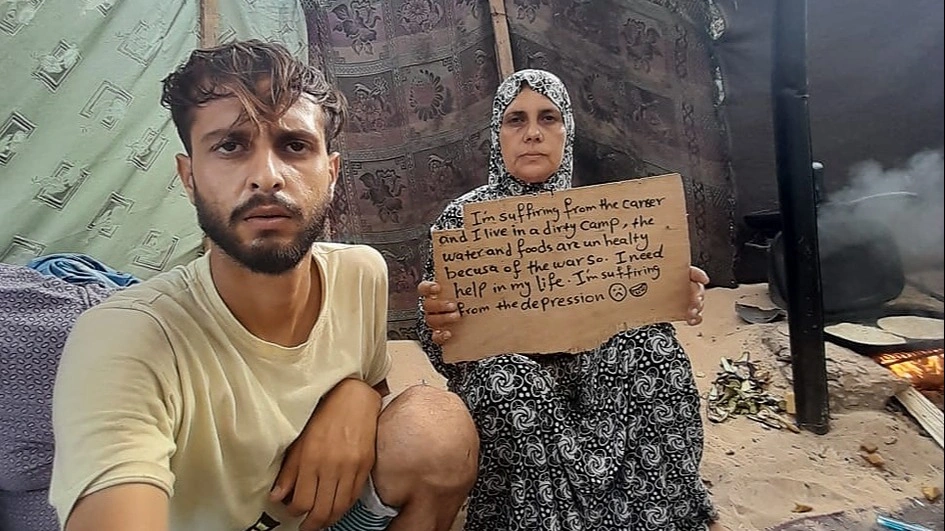 I'm suffring from the canser
and I live in a dirty Camp, the
water and foods are un healty
becusa of the war so. I need
help in my life. I'm suffiring
from the depression